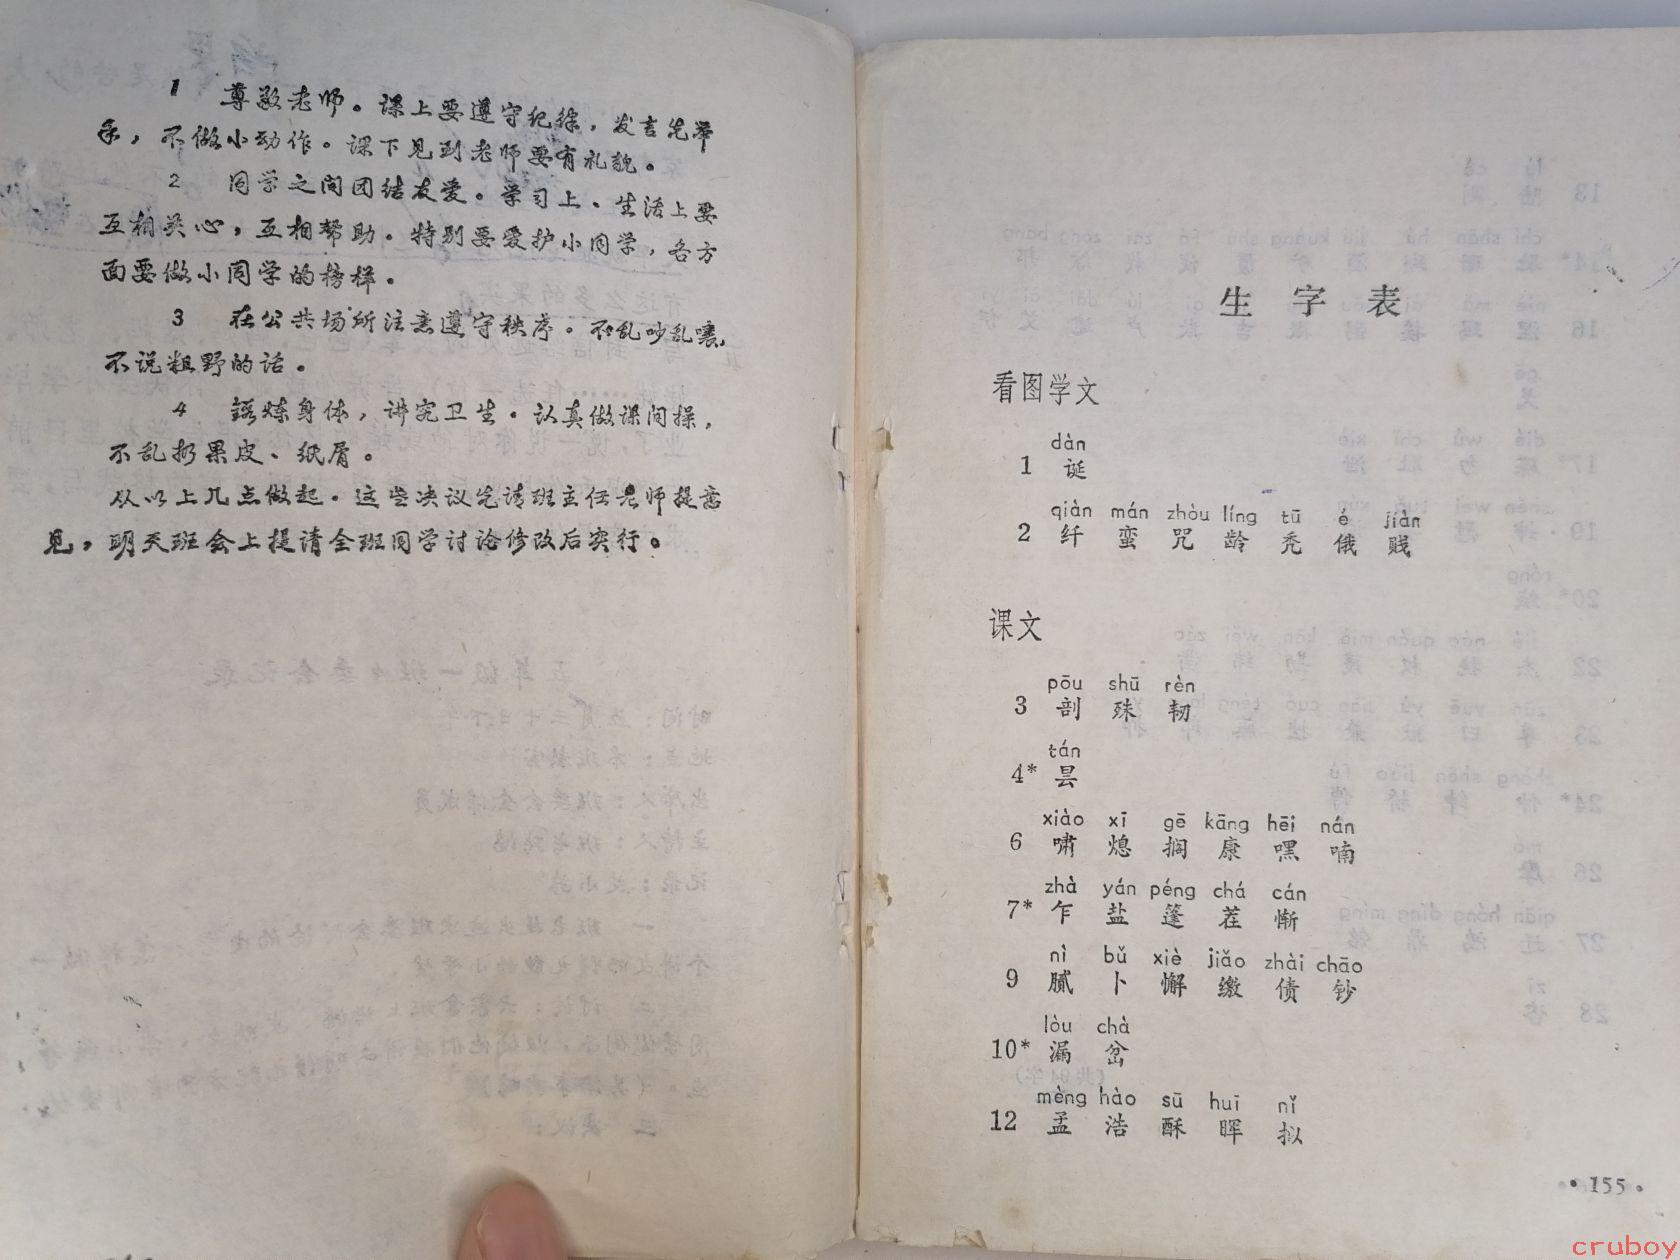 1 尊敬老师。课上要遵守纪律，发言先举
手，不做小动作。课下见到老师要有礼貌。
2 同学之间团结友爱。学习上、生活上要
互相关心，互相帮助。特别要爱护小同学，各方
面要做小同学的榜样。
3 在公共场所注意遵守秩序。不乱吵乱嚷，
不说粗野的话。
4 锻炼身体，讲究卫生。认真做课间操，
不乱扔果皮、纸屑。
从以上几点做起。这些决议先请班主任老师提意
见，明天班会上提请全班同学讨论修改后实行。
生字表
看图学文
dàn
1 诞
qiàn mán zhòu líng tū é jiàn
2 纤 蛮 咒 龄 秃 俄 贱
课文
pōu shū rèn
3 剖 殊 韧
tán
4* 昙
xiào xī gē kāng hēi nán
6 啸 熄 搁 康 嘿 喃
zhà yán péng chá cán
7* 乍 盐 篷 茬 惭
nì bǔ xiè jiǎo zhài chāo
9 腻 卜 懈 缴 债 钞
lòu chà
10* 漏 岔
mèng hào sū huī nǐ
12 孟 浩 酥 晖 拟
·155·
cruboy